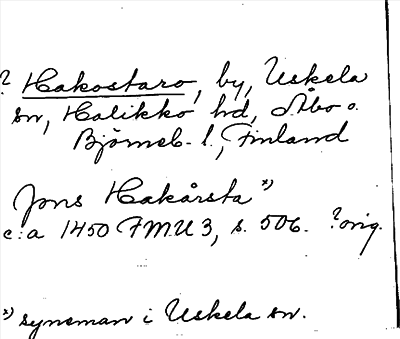 ? Hakostaro, by, Uskela
sn, Halikko hd, Åbo o.
Björneb. l., Finland
Jons Hakårsta *)
c:a 1450 FMU 3, s. 506. ? orig.
*) syneman i Uskela sn.